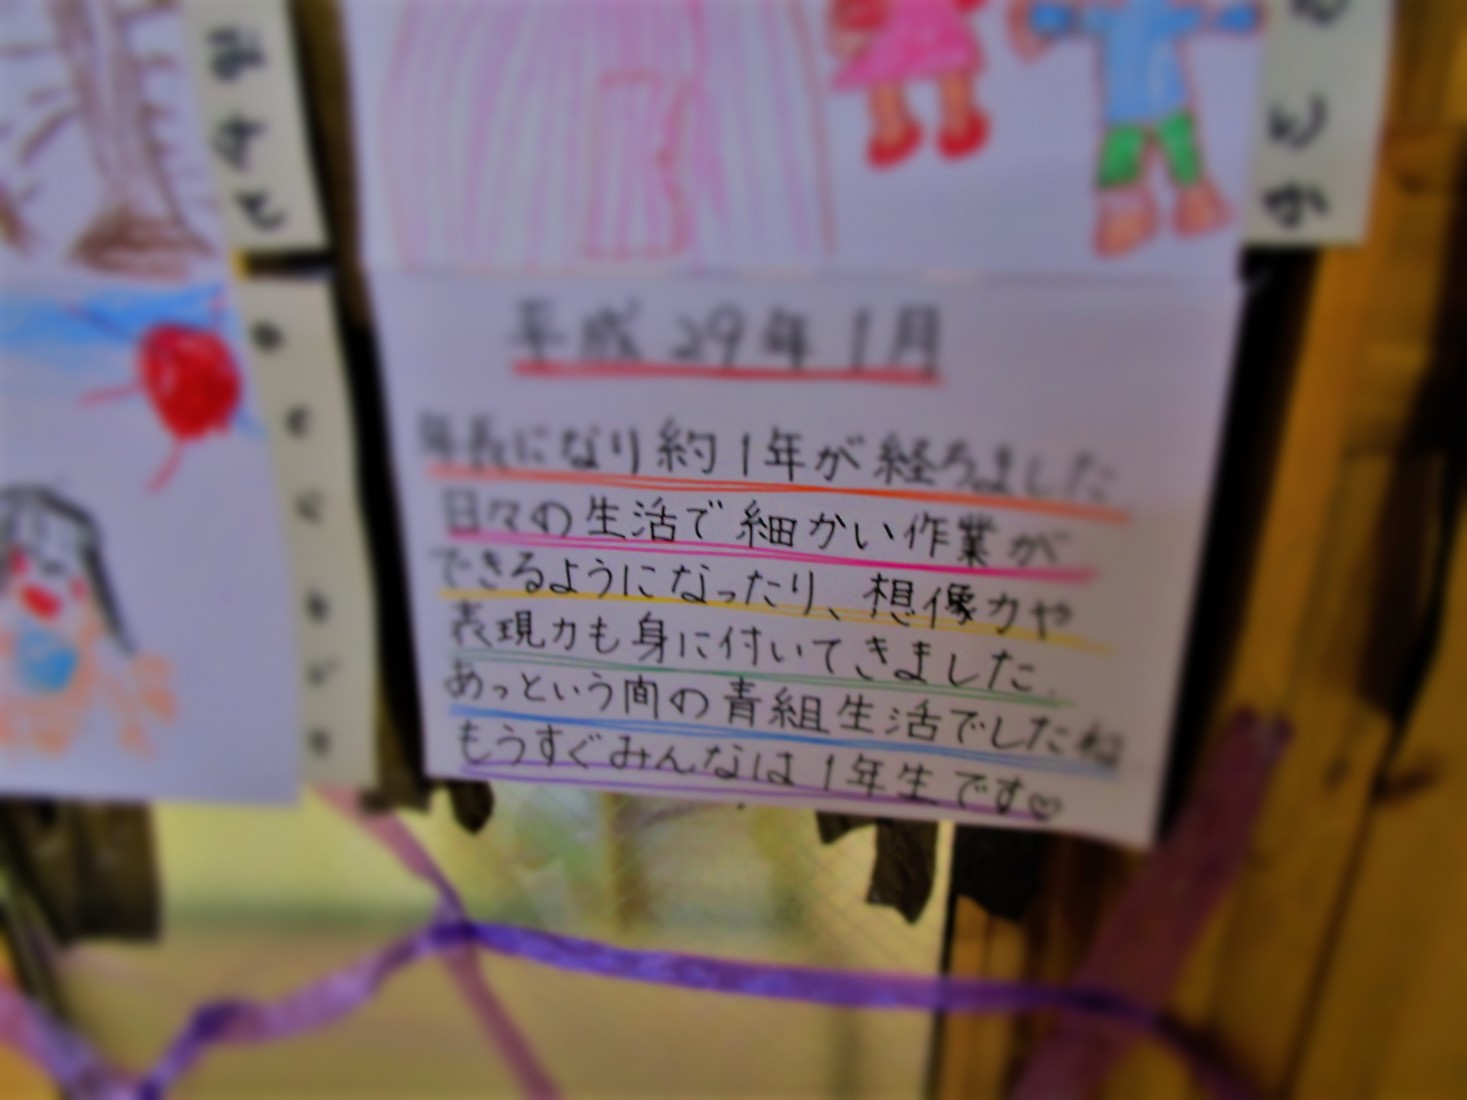 平成29年1月
年長になり約1年が経ちました
日々の生活で細かい作業が
できるようになったり、想像力や
表現力も身に付いてきました。
あっという間の青組生活でしたね
もうすぐみんなは1年生です♡